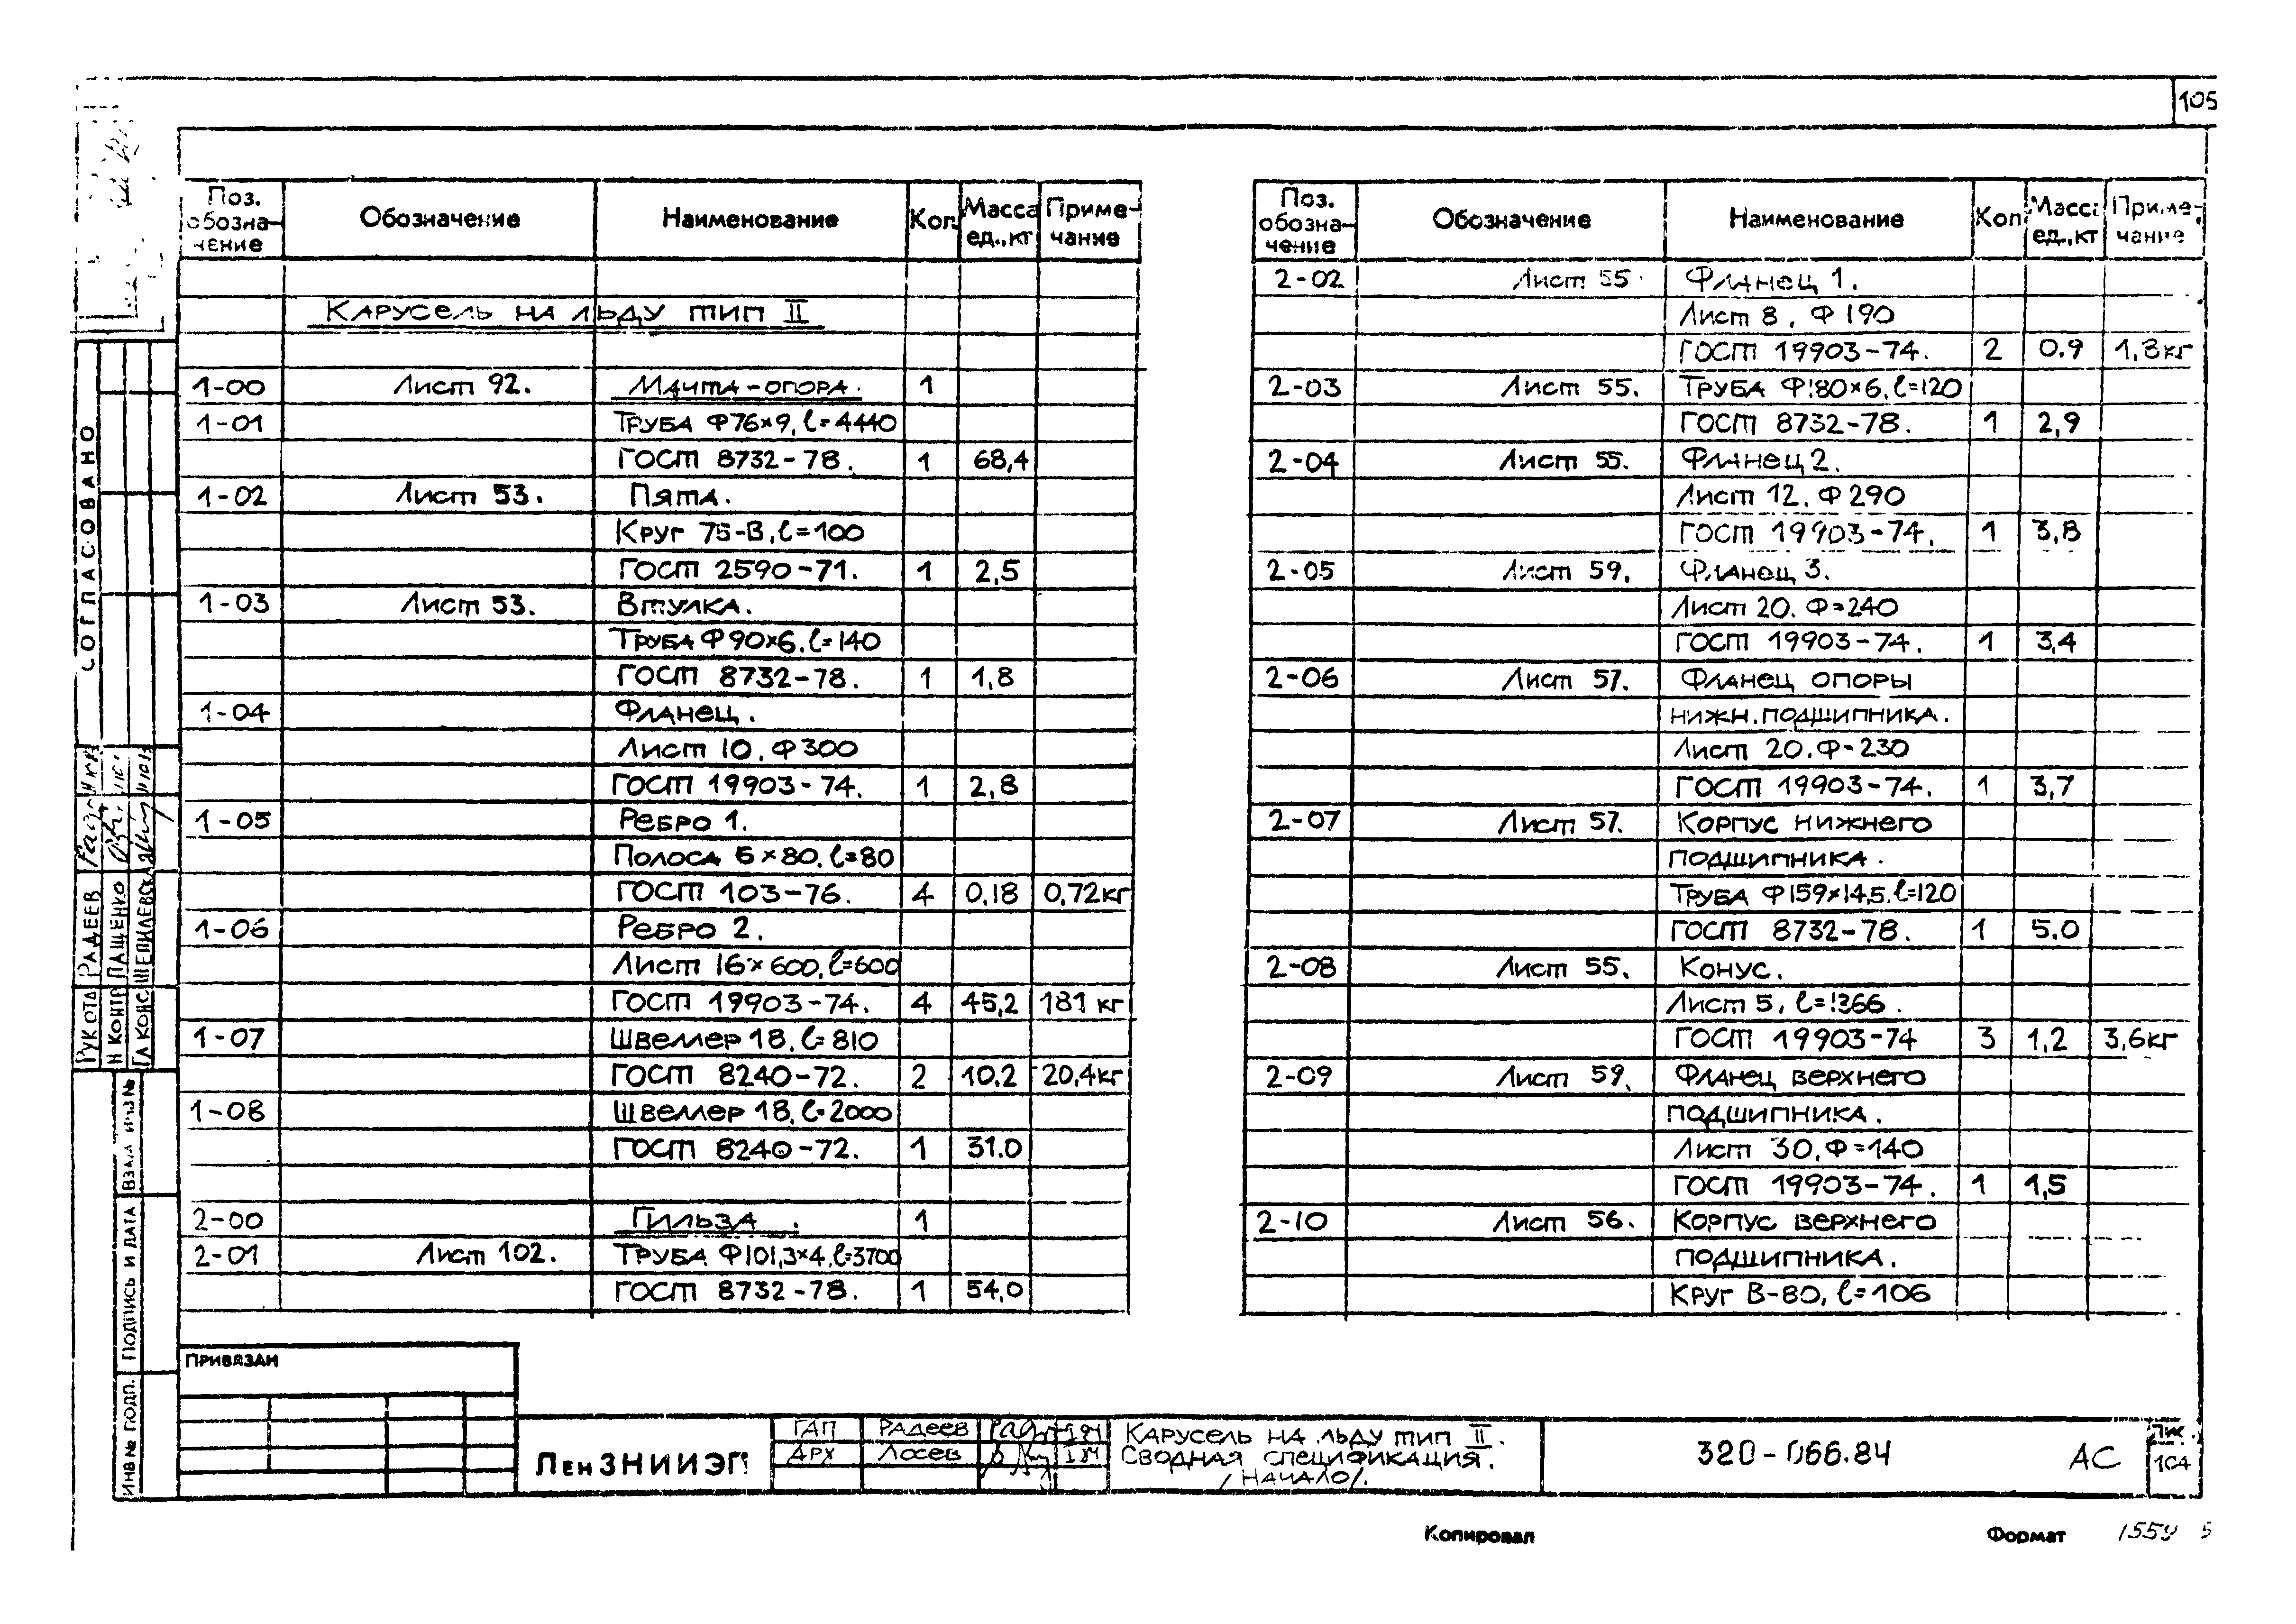 105
Поз. обозна- чение Обозначение Наименование Кол. Масса ед., кг Приме- чание
Карусель на льду тип II
1-00 Лист 92. Мачта-опора. 1
1-01 Труба Ф76×9, ℓ=4440
ГОСТ 8732-78. 1 68,4
1-02 Лист 53. Пята.
Круг 75-В, ℓ=100
ГОСТ 2590-71. 1 2,5
1-03 Лист 53. Втулка.
Труба Ф90×6, ℓ=140
ГОСТ 8732-78. 1 1,8
1-04 Фланец.
Лист 10. Ф300
ГОСТ 19903-74. 1 2,8
1-05 Ребро 1.
Полоса 6×80, ℓ=80
ГОСТ 103-76. 4 0,18 0,72кг
1-06 Ребро 2.
Лист 16×600, ℓ=600
ГОСТ 19903-74. 4 45,2 181 кг
1-07 Швеллер 18, ℓ=810
ГОСТ 8240-72. 2 10.2 20,4кг
1-08 Швеллер 18, ℓ=2000
ГОСТ 8240-72. 1 31.0
2-00 Гильза. 1
2-01 Лист 102. Труба Ф101,3×4, ℓ=3700
ГОСТ 8732-78. 1 54,0
Поз. обозна- чение Обозначение Наименование Кол Масса ед., кг Приме- чание
2-02 Лист 55 Фланец 1.
Лист 8. Ф190
ГОСТ 19903-74. 2 0.9 1,8кг
2-03 Лист 55. Труба Ф180×6, ℓ=120
ГОСТ 8732-78. 1 2,9
2-04 Лист 55. Фланец 2.
Лист 12. Ф290
ГОСТ 19903-74. 1 3,8
2-05 Лист 59. Фланец 3.
Лист 20. Ф=240
ГОСТ 19903-74. 1 3,4
2-06 Лист 57. Фланец опоры
нижн. подшипника.
Лист 20. Ф-230
ГОСТ 19903-74. 1 3,7
2-07 Лист 57. Корпус нижнего
подшипника.
Труба Ф159×14,5, ℓ=120
ГОСТ 8732-78. 1 5.0
2-08 Лист 55. Конус.
Лист 5, ℓ=1366.
ГОСТ 19903-74 3 1,2 3,6кг
2-09 Лист 59. Фланец верхнего
подшипника.
Лист 30, Ф=140
ГОСТ 19903-74. 1 1,5
2-10 Лист 56. Корпус верхнего
подшипника.
Круг В-80, ℓ=106
СОГЛАСОВАНО
Рук ота Радеев
Н контр Пащенко
Гл конс Шепилевская
Взам инв №
Подпись и дата
Инв № подл.
Привязан
ЛенЗНИИЭП
ГАП Радеев
Арх Лосев
Карусель на льду тип II.
Сводная спецификация.
/Начало/.
320-066.84 АС
Лис.
104
Копировал Формат